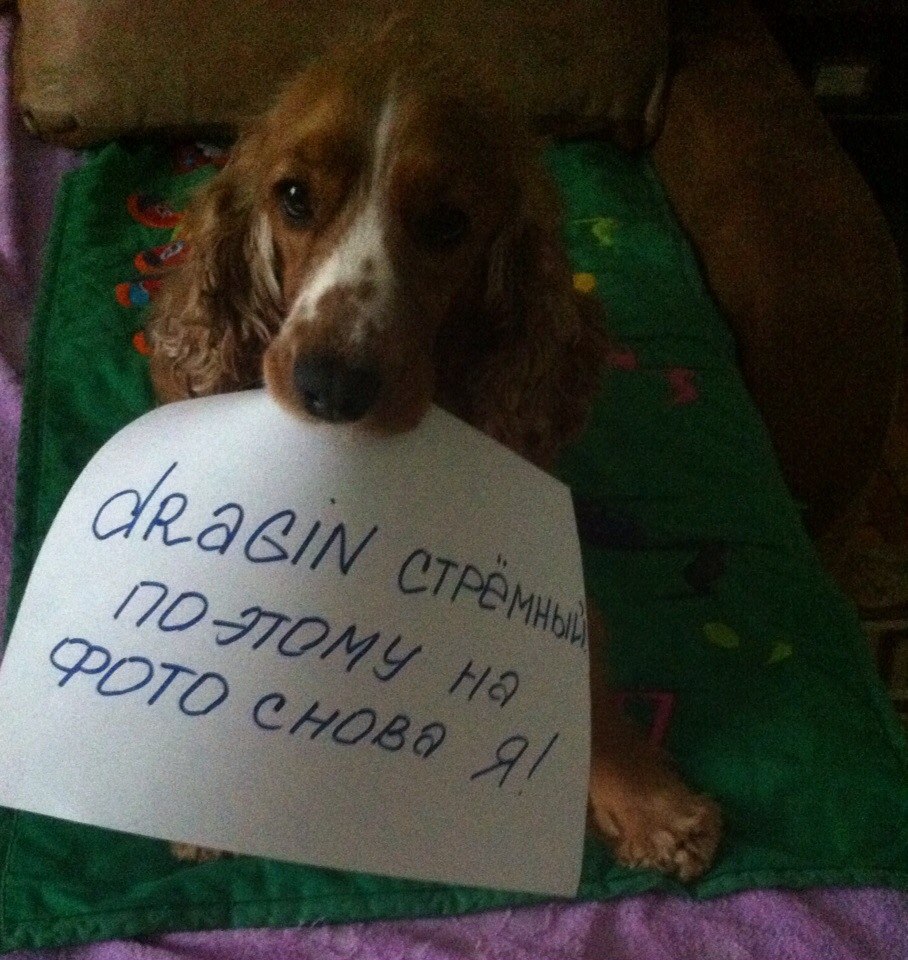 dRaGiN СТРЁМНЫЙ
ПОЭТОМУ На
ФОТО СНОВа Я!